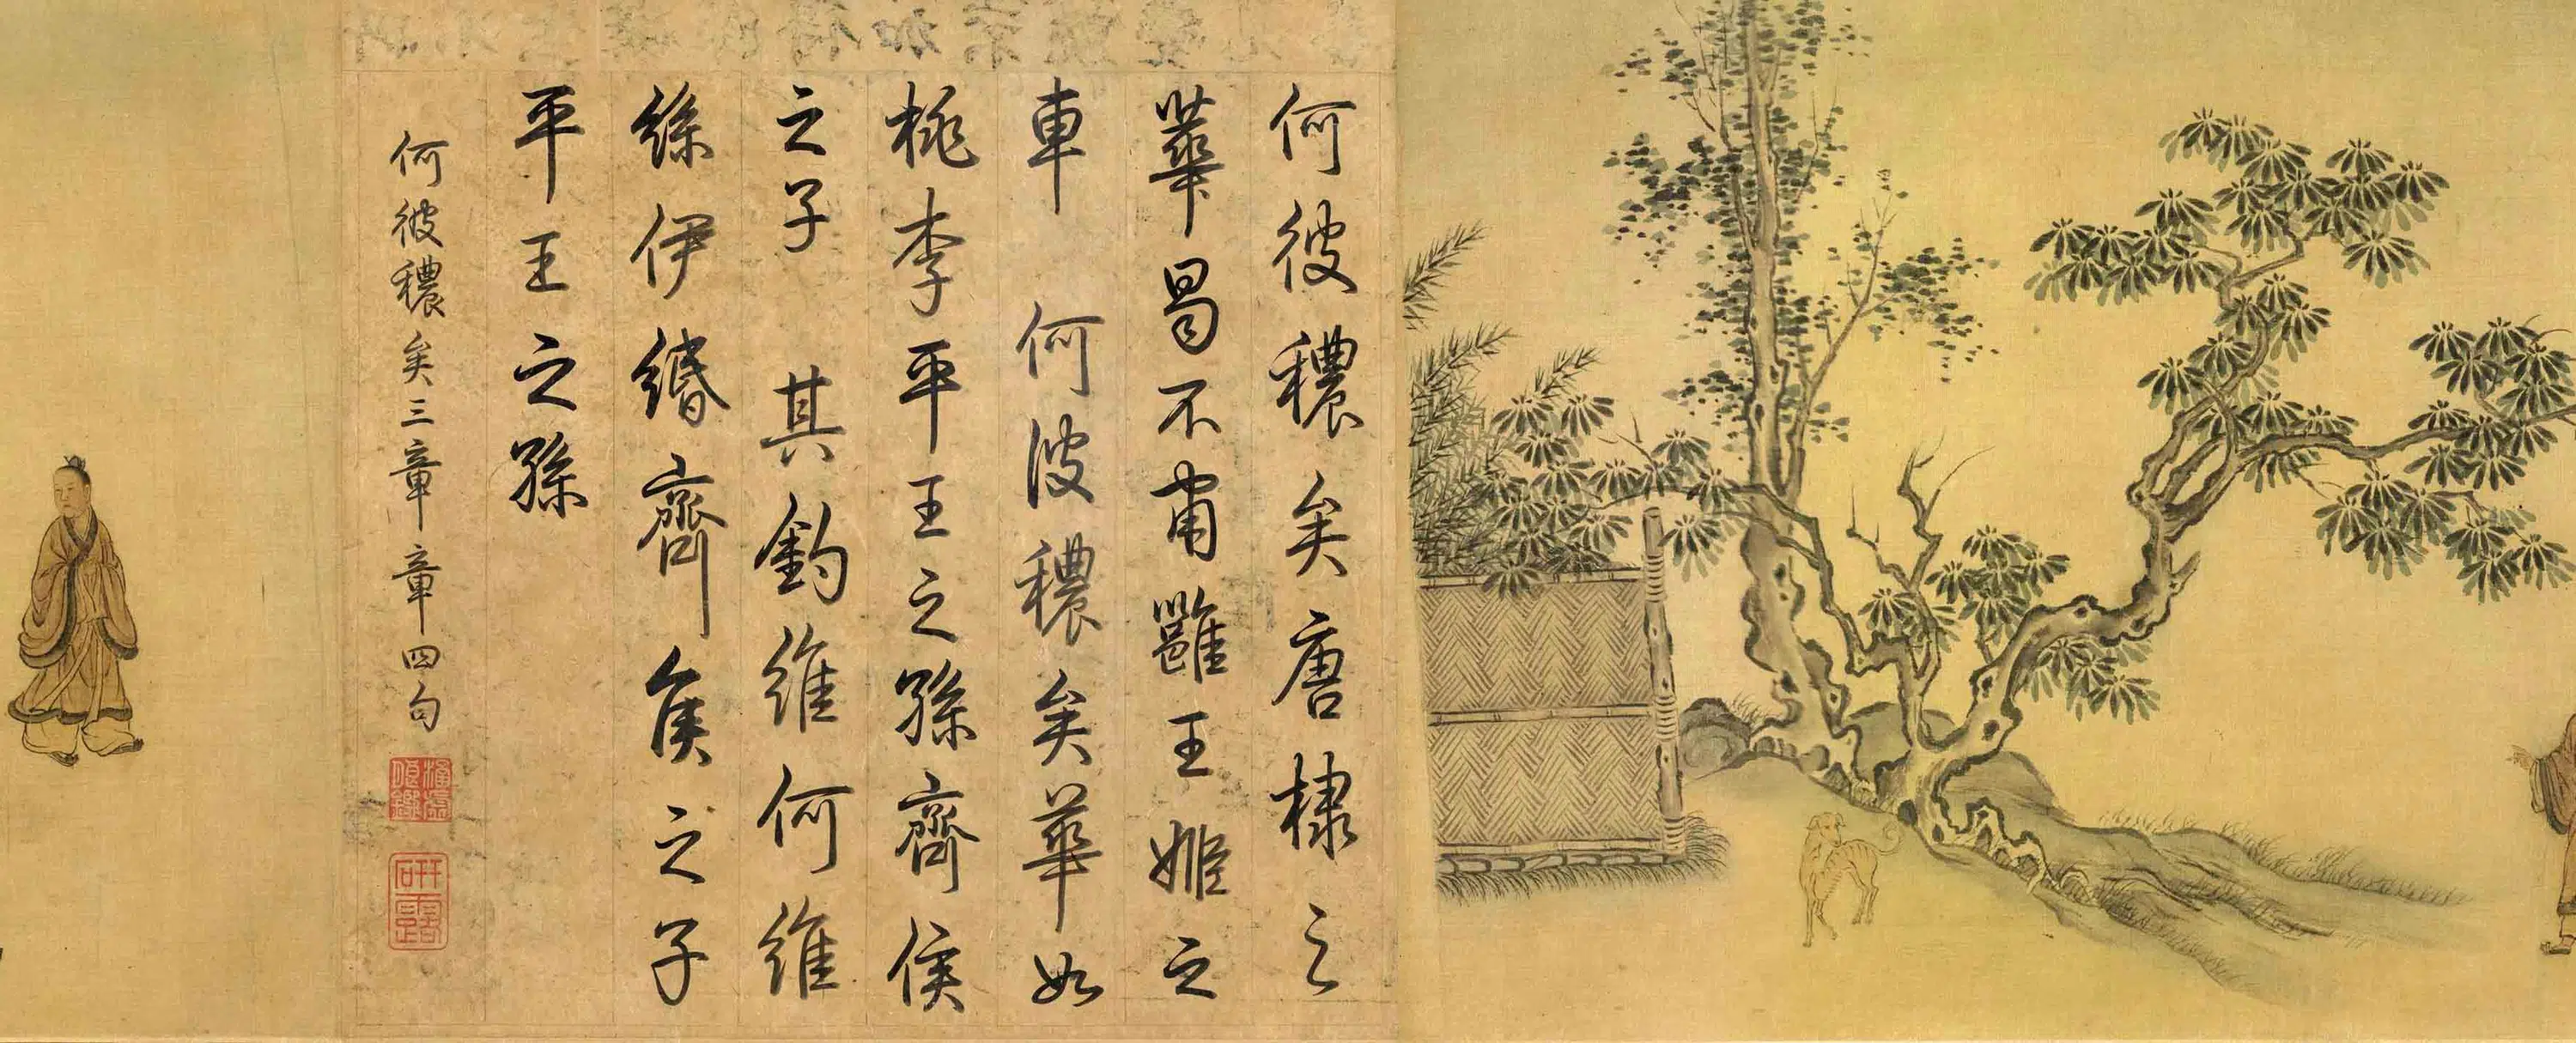 何彼穠矣唐棣之
華曷不肅雝王姬之
車　何彼穠矣華如
桃李平王之孫齊侯
之子　其釣維何維
絲伊緡齊侯之子
平王之孫
何彼穠矣三章章四句